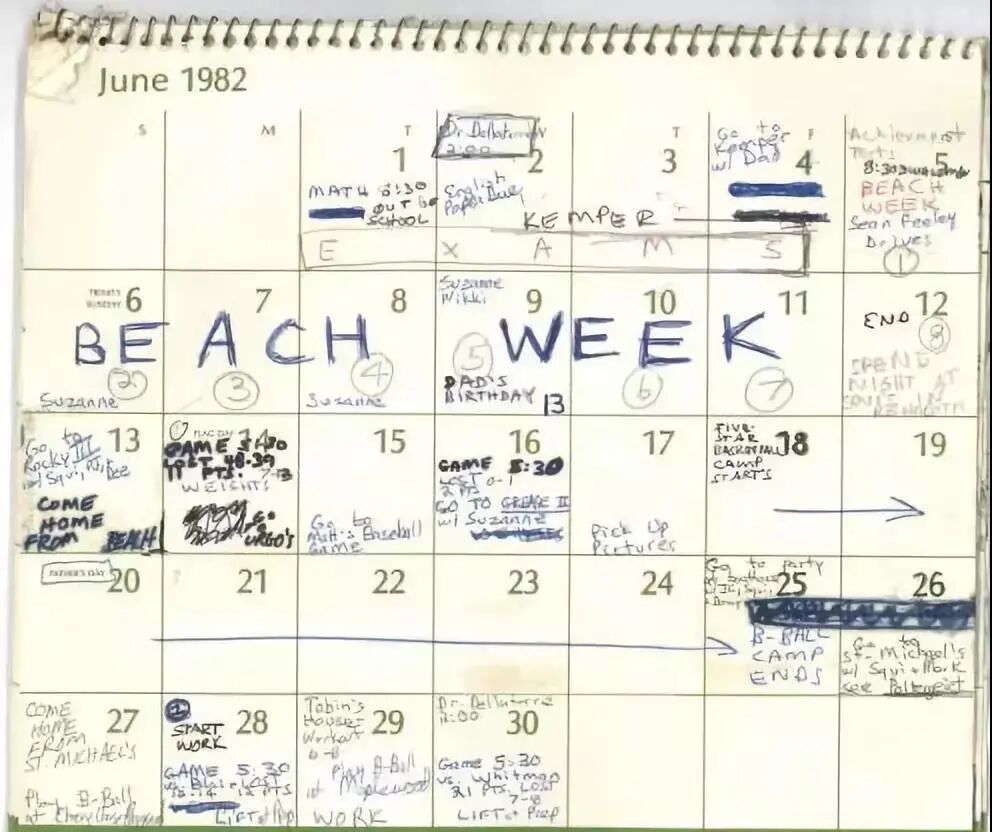 June 1982
S M T W T F S
1
MATH 8:30
OUT OF
SCHOOL
2:00
2
English
Paper Due
3
KEMPER
Go to
Kemper
w/ Dad
4
E X A M S
Achievement
Tests
8:30
5
BEACH
WEEK
Sean Feeley
Dr. Ives
1
6
7
8
Suzanne
Nikki
9
10
11
12
BEACH WEEK
END
8
2
Suzanne
3
4
Suzanne
5
DAD'S
BIRTHDAY 13
6
7
SPEND
NIGHT AT
13
Go to
Rocky III
w/ Squi
COME
HOME
FROM BEACH
1
14
GAME 5:30
LOST 48-39
11 PTS. 7-13
WEIGHTS
GO
TO
URGO'S
15
Go to
Matt's Baseball
Game
16
GAME 5:30
LOST
2 PTS
GO TO GREASE II
w/ Suzanne
17
Pick Up
Pictures
FIVE-
STAR
BASKETBALL
CAMP
STARTS
18
19
FATHER'S DAY
20
21
22
23
24
Go to party
25
B-BALL
CAMP
ENDS
26
Go to
St. Michael's
w/ Squi + Mark
see Poltergeist
COME
HOME
FROM
ST. MICHAEL'S
27
Play B-Ball
at
2
START
WORK
28
GAME 5:30
LIFT at Prep
Tobin's
House-
Workout
6-8
29
Play B-Ball
at Maplewood
WORK
2:00
30
Game 5:30
vs. Whitman
21 PTS. LOST
LIFT at Prep